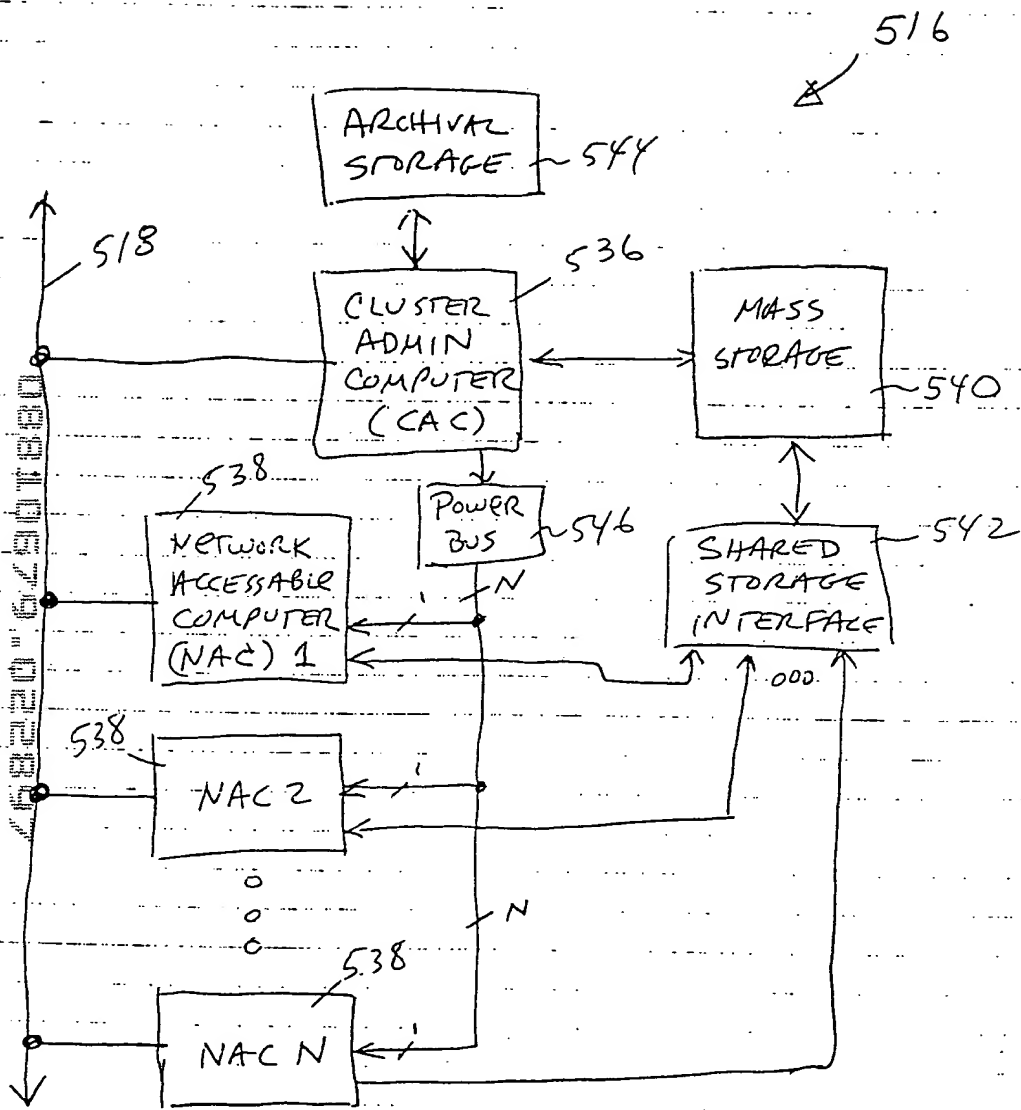 516
ARCHIVAL
STORAGE
544
518
536
CLUSTER
ADMIN
COMPUTER
(CAC)
MASS
STORAGE
540
538
POWER
BUS
546
542
NETWORK
ACCESSABLE
COMPUTER
(NAC) 1
N
1
SHARED
STORAGE
INTERFACE
538
NAC 2
1
N
538
NAC N
1